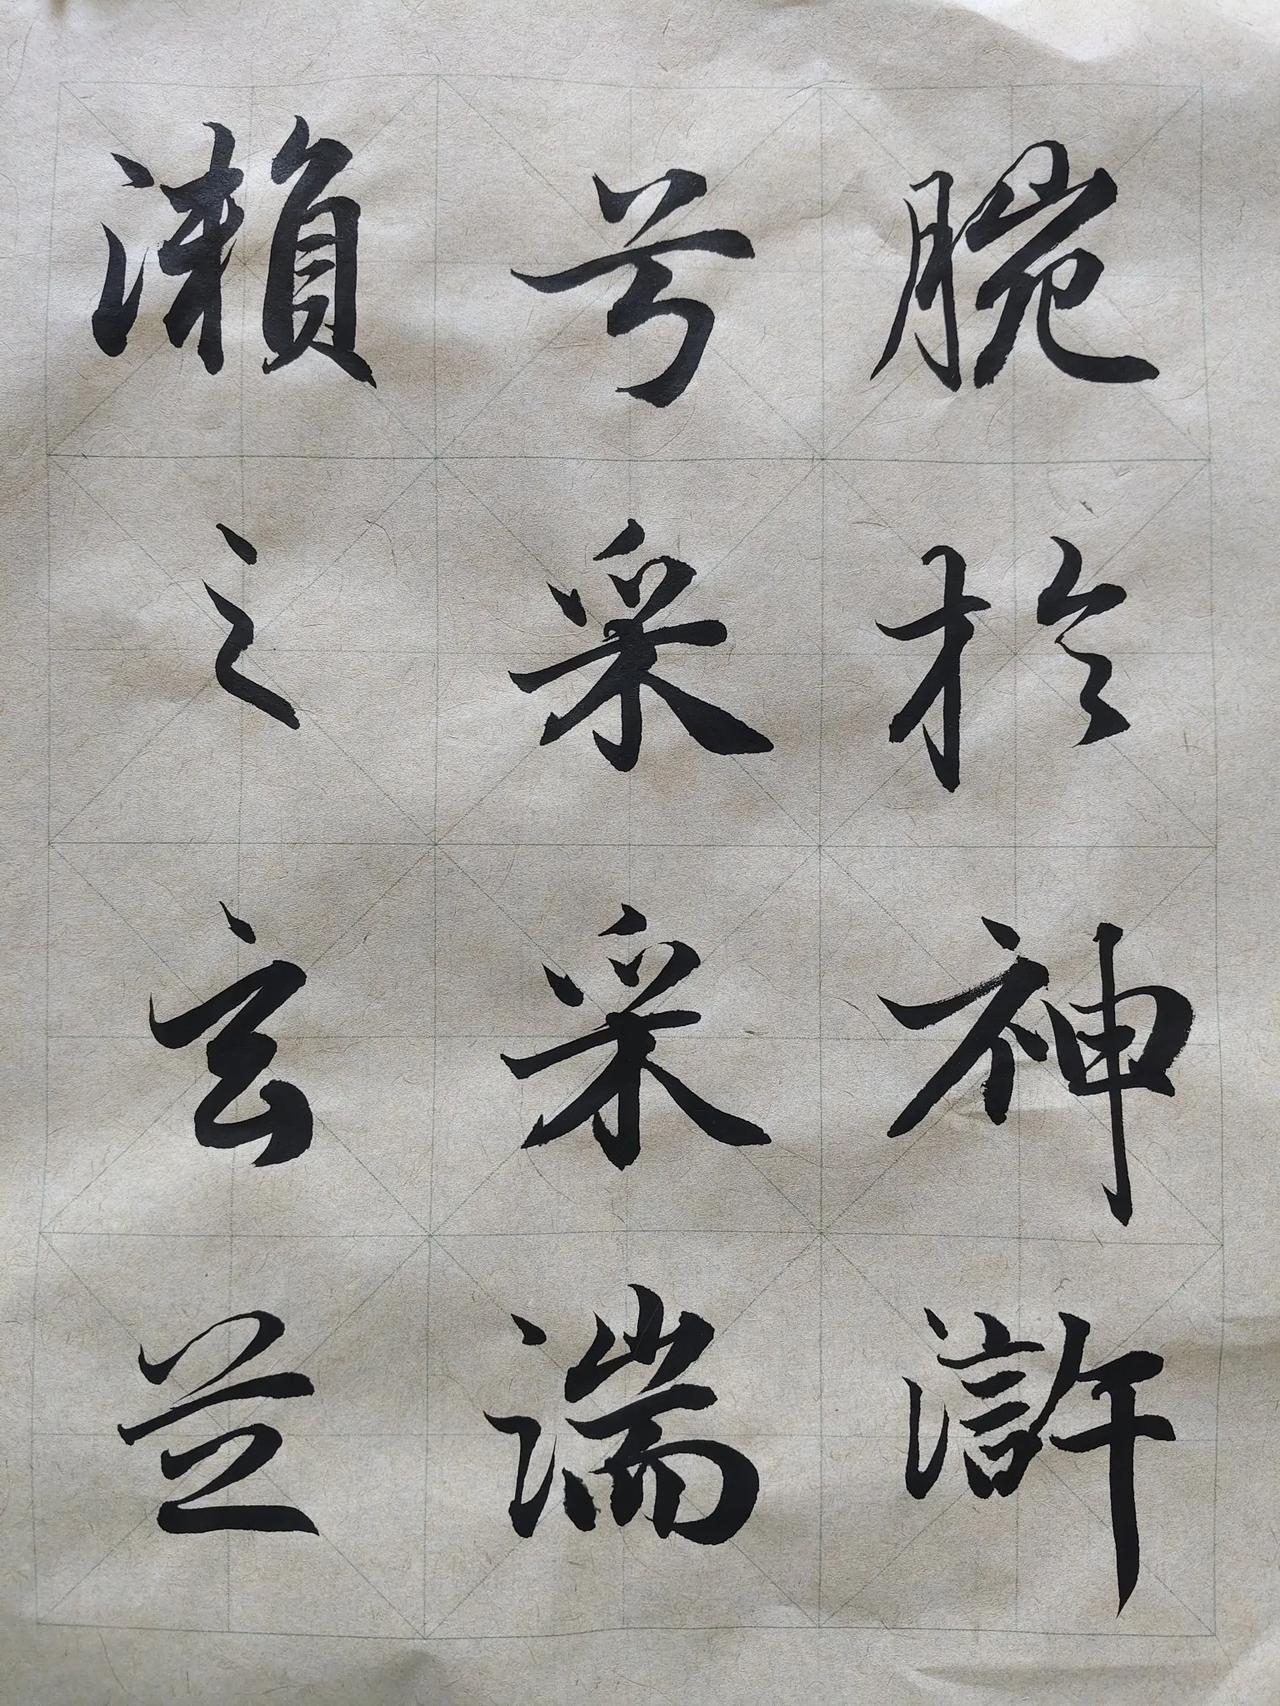 腕於神滸
兮采采湍
瀨之玄芝